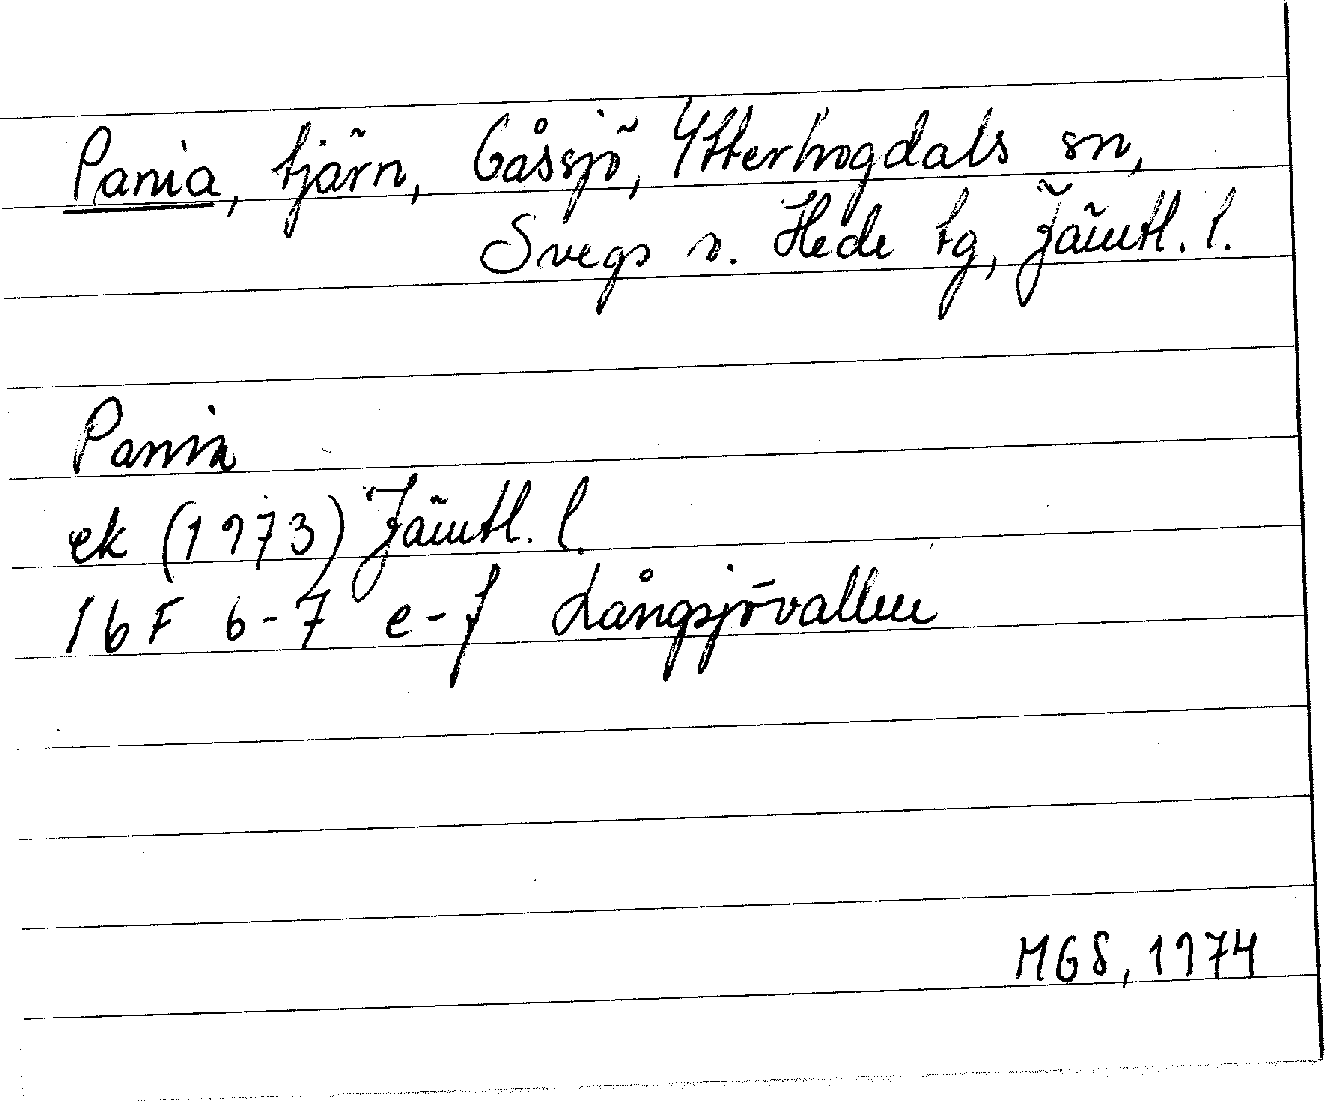 Pania, tjärn, Gåssjö, Ytterhogdals sn,
Svegs o. Hede tg, Jämtl. l.
Pania
ek (1973) Jämtl. l.
16 F 6-7 e-f Långsjövallen
MGS, 1974